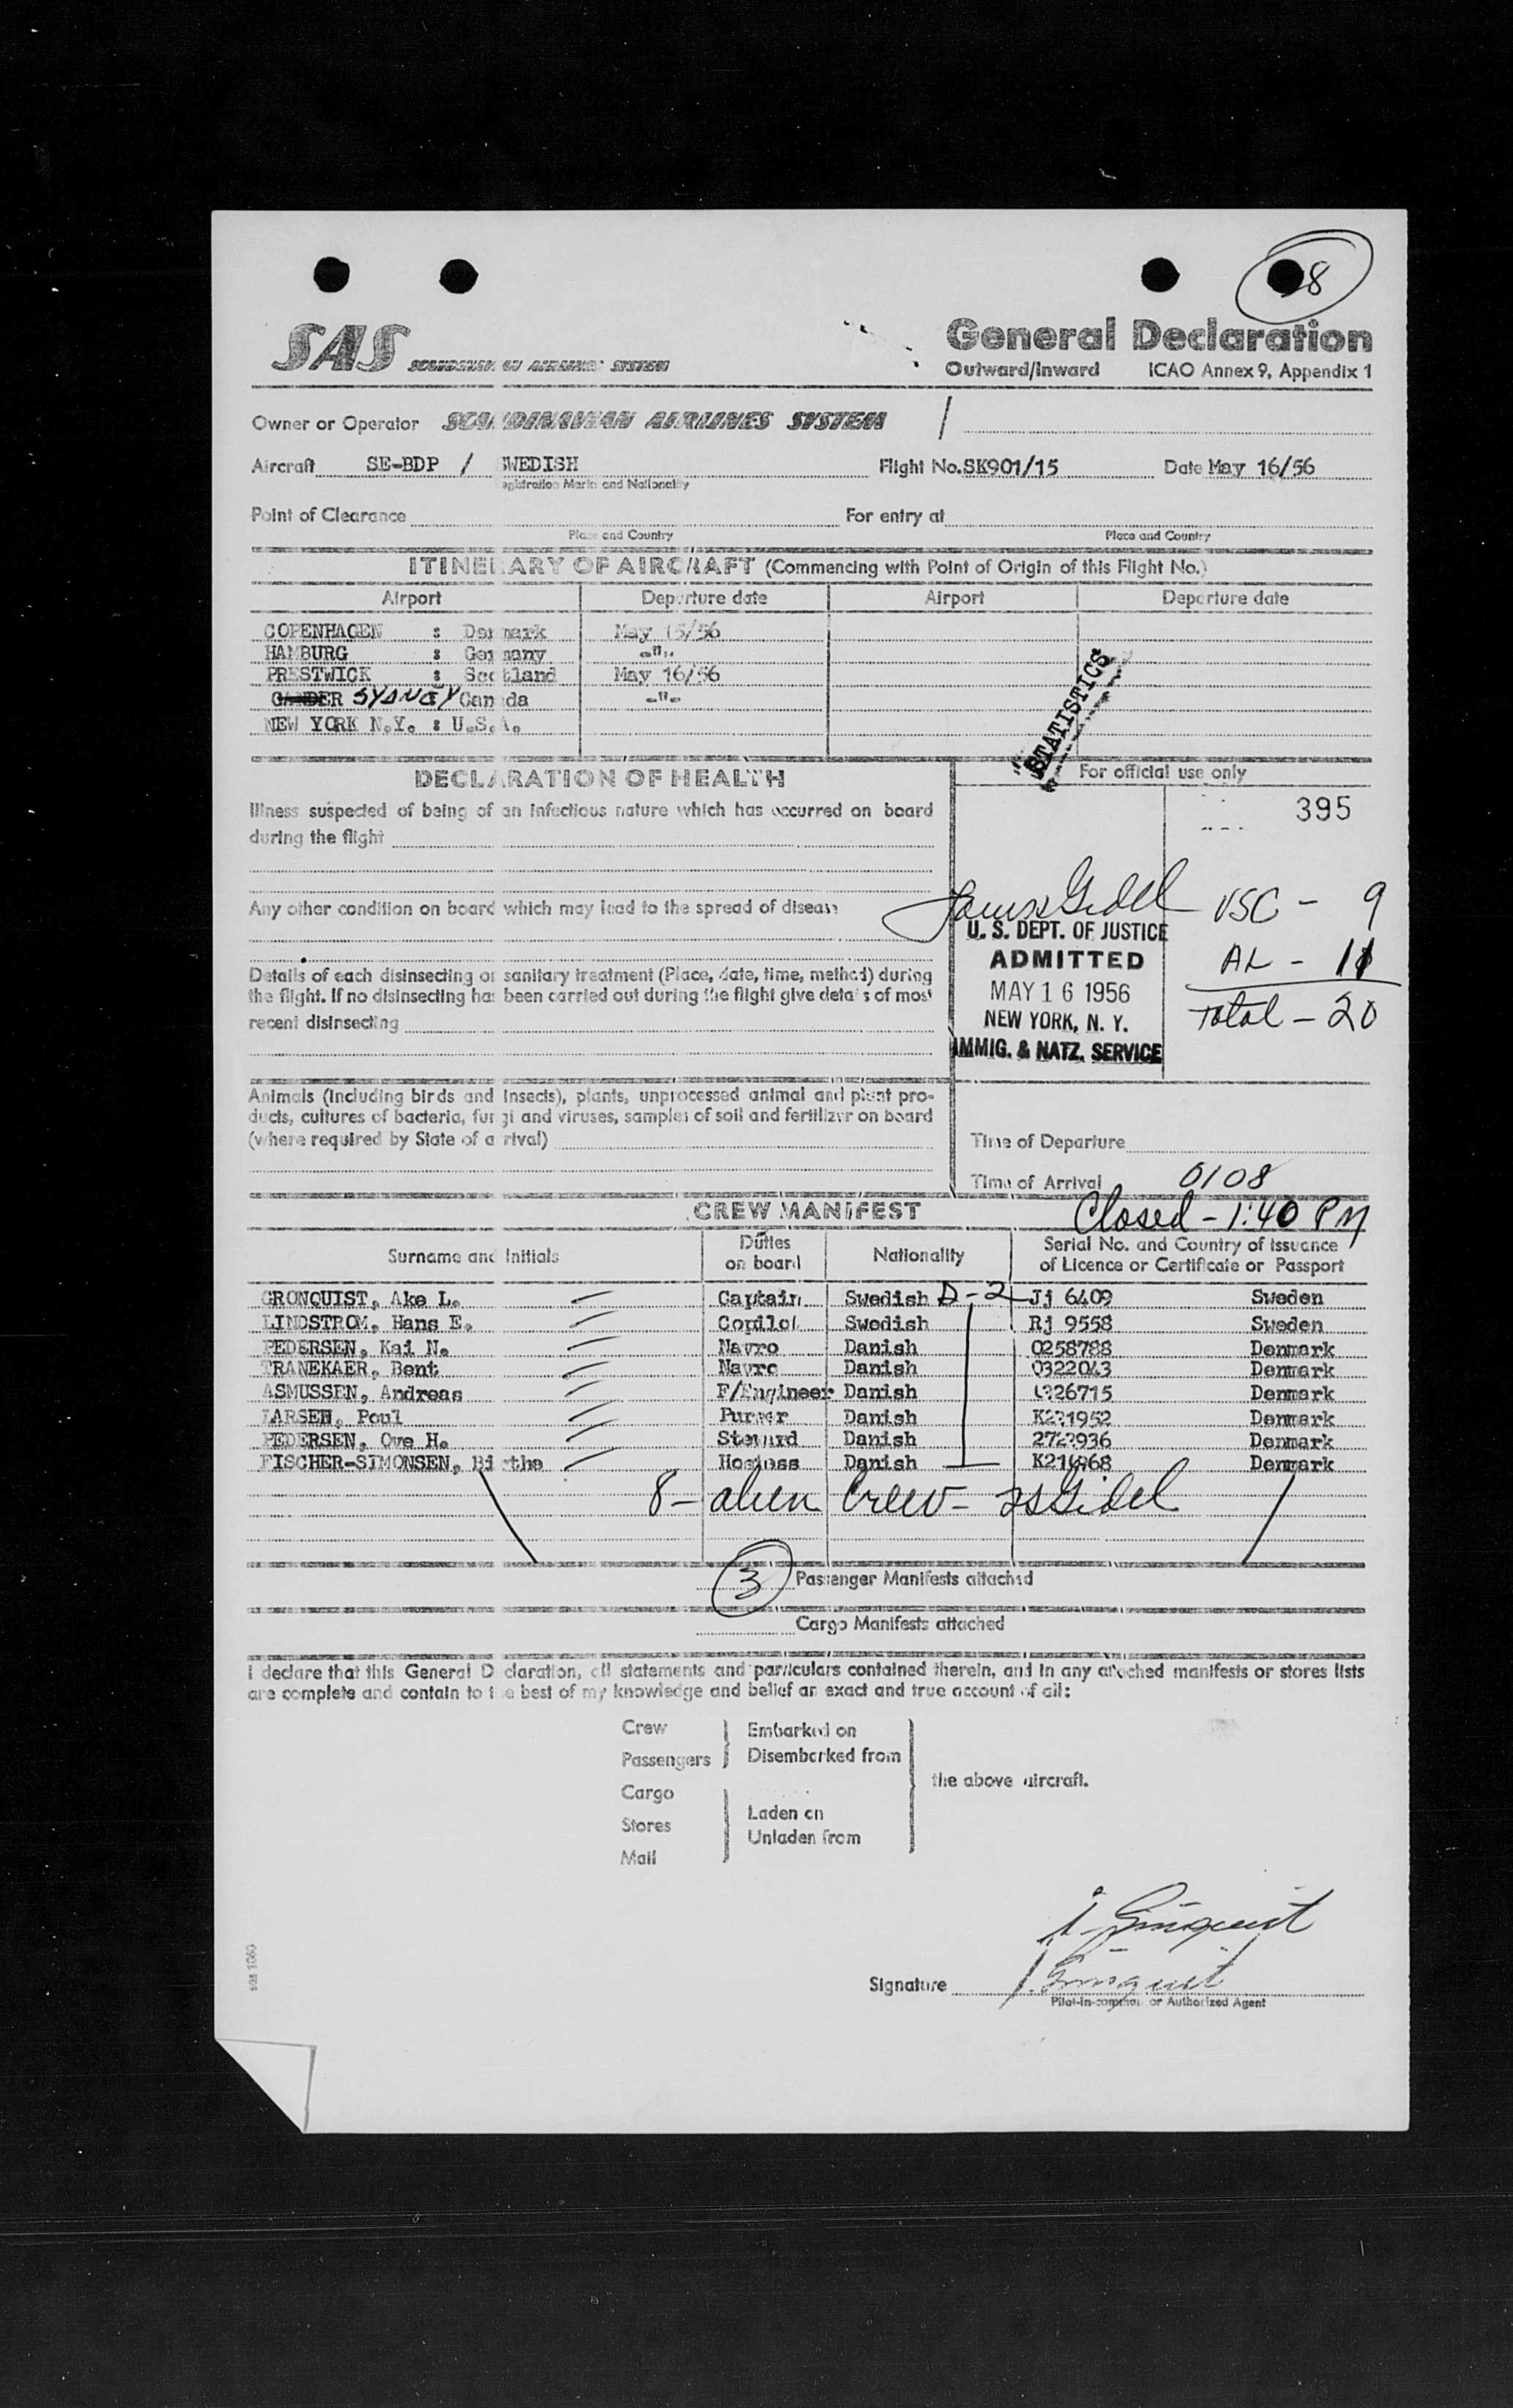 8
SAS SCANDINAVIAN AIRLINES SYSTEM
General Declaration
Outward/Inward ICAO Annex 9, Appendix 1
Owner or Operator SCANDINAVIAN AIRLINES SYSTEM /
Aircraft SE-BDP / SWEDISH Flight No. SK901/15 Date May 16/56
Registration Marks and Nationality
Point of Clearance For entry at
Place and Country Place and Country
ITINERARY OF AIRCRAFT (Commencing with Point of Origin of this Flight No.)
Airport Departure date Airport Departure date
COPENHAGEN : Denmark May 15/56
HAMBURG : Germany -"-
PRESTWICK : Scotland May 16/56
GANDER SYDNEY Canada -"-
NEW YORK N.Y. : U.S.A.
STATISTICS
DECLARATION OF HEALTH
For official use only
Illness suspected of being of an infectious nature which has occurred on board
during the flight
395
Any other condition on board which may lead to the spread of disease
USC - 9
U. S. DEPT. OF JUSTICE
ADMITTED
AL - 11
MAY 16 1956
Total - 20
NEW YORK, N. Y.
IMMIG. & NATZ. SERVICE
Details of each disinsecting or sanitary treatment (Place, date, time, method) during
the flight. If no disinsecting has been carried out during the flight give details of most
recent disinsecting
Animals (including birds and insects), plants, unprocessed animal and plant pro-
ducts, cultures of bacteria, fungi and viruses, samples of soil and fertilizer on board
(where required by State of arrival)
Time of Departure
Time of Arrival 0108
Closed - 1:40 PM
CREW MANIFEST
Surname and Initials Duties on board Nationality Serial No. and Country of Issuance of Licence or Certificate or Passport
GRONQUIST, Ake L. Captain Swedish D-2 Jj 6409 Sweden
LINDSTROM, Hans E. Copilot Swedish Rj 9558 Sweden
PEDERSEN, Kai N. Navro Danish 0258788 Denmark
TRANEKAER, Bent Navro Danish 0322043 Denmark
ASMUSSEN, Andreas F/Engineer Danish Denmark
LARSEN, Poul Purser Danish Denmark
PEDERSEN, Ove H. Steward Danish Denmark
FISCHER-SIMONSEN, Birthe Hostess Danish Denmark
8 - alien Crew - Gidel
3 Passenger Manifests attached
Cargo Manifests attached
I declare that this General Declaration, all statements and particulars contained therein, and in any attached manifests or stores lists
are complete and contain to the best of my knowledge and belief an exact and true account of all:
Crew
Passengers
Embarked on
Disembarked from
Cargo
Stores
Mail
Laden on
Unladen from
the above aircraft.
Signature
Pilot-in-command or Authorized Agent